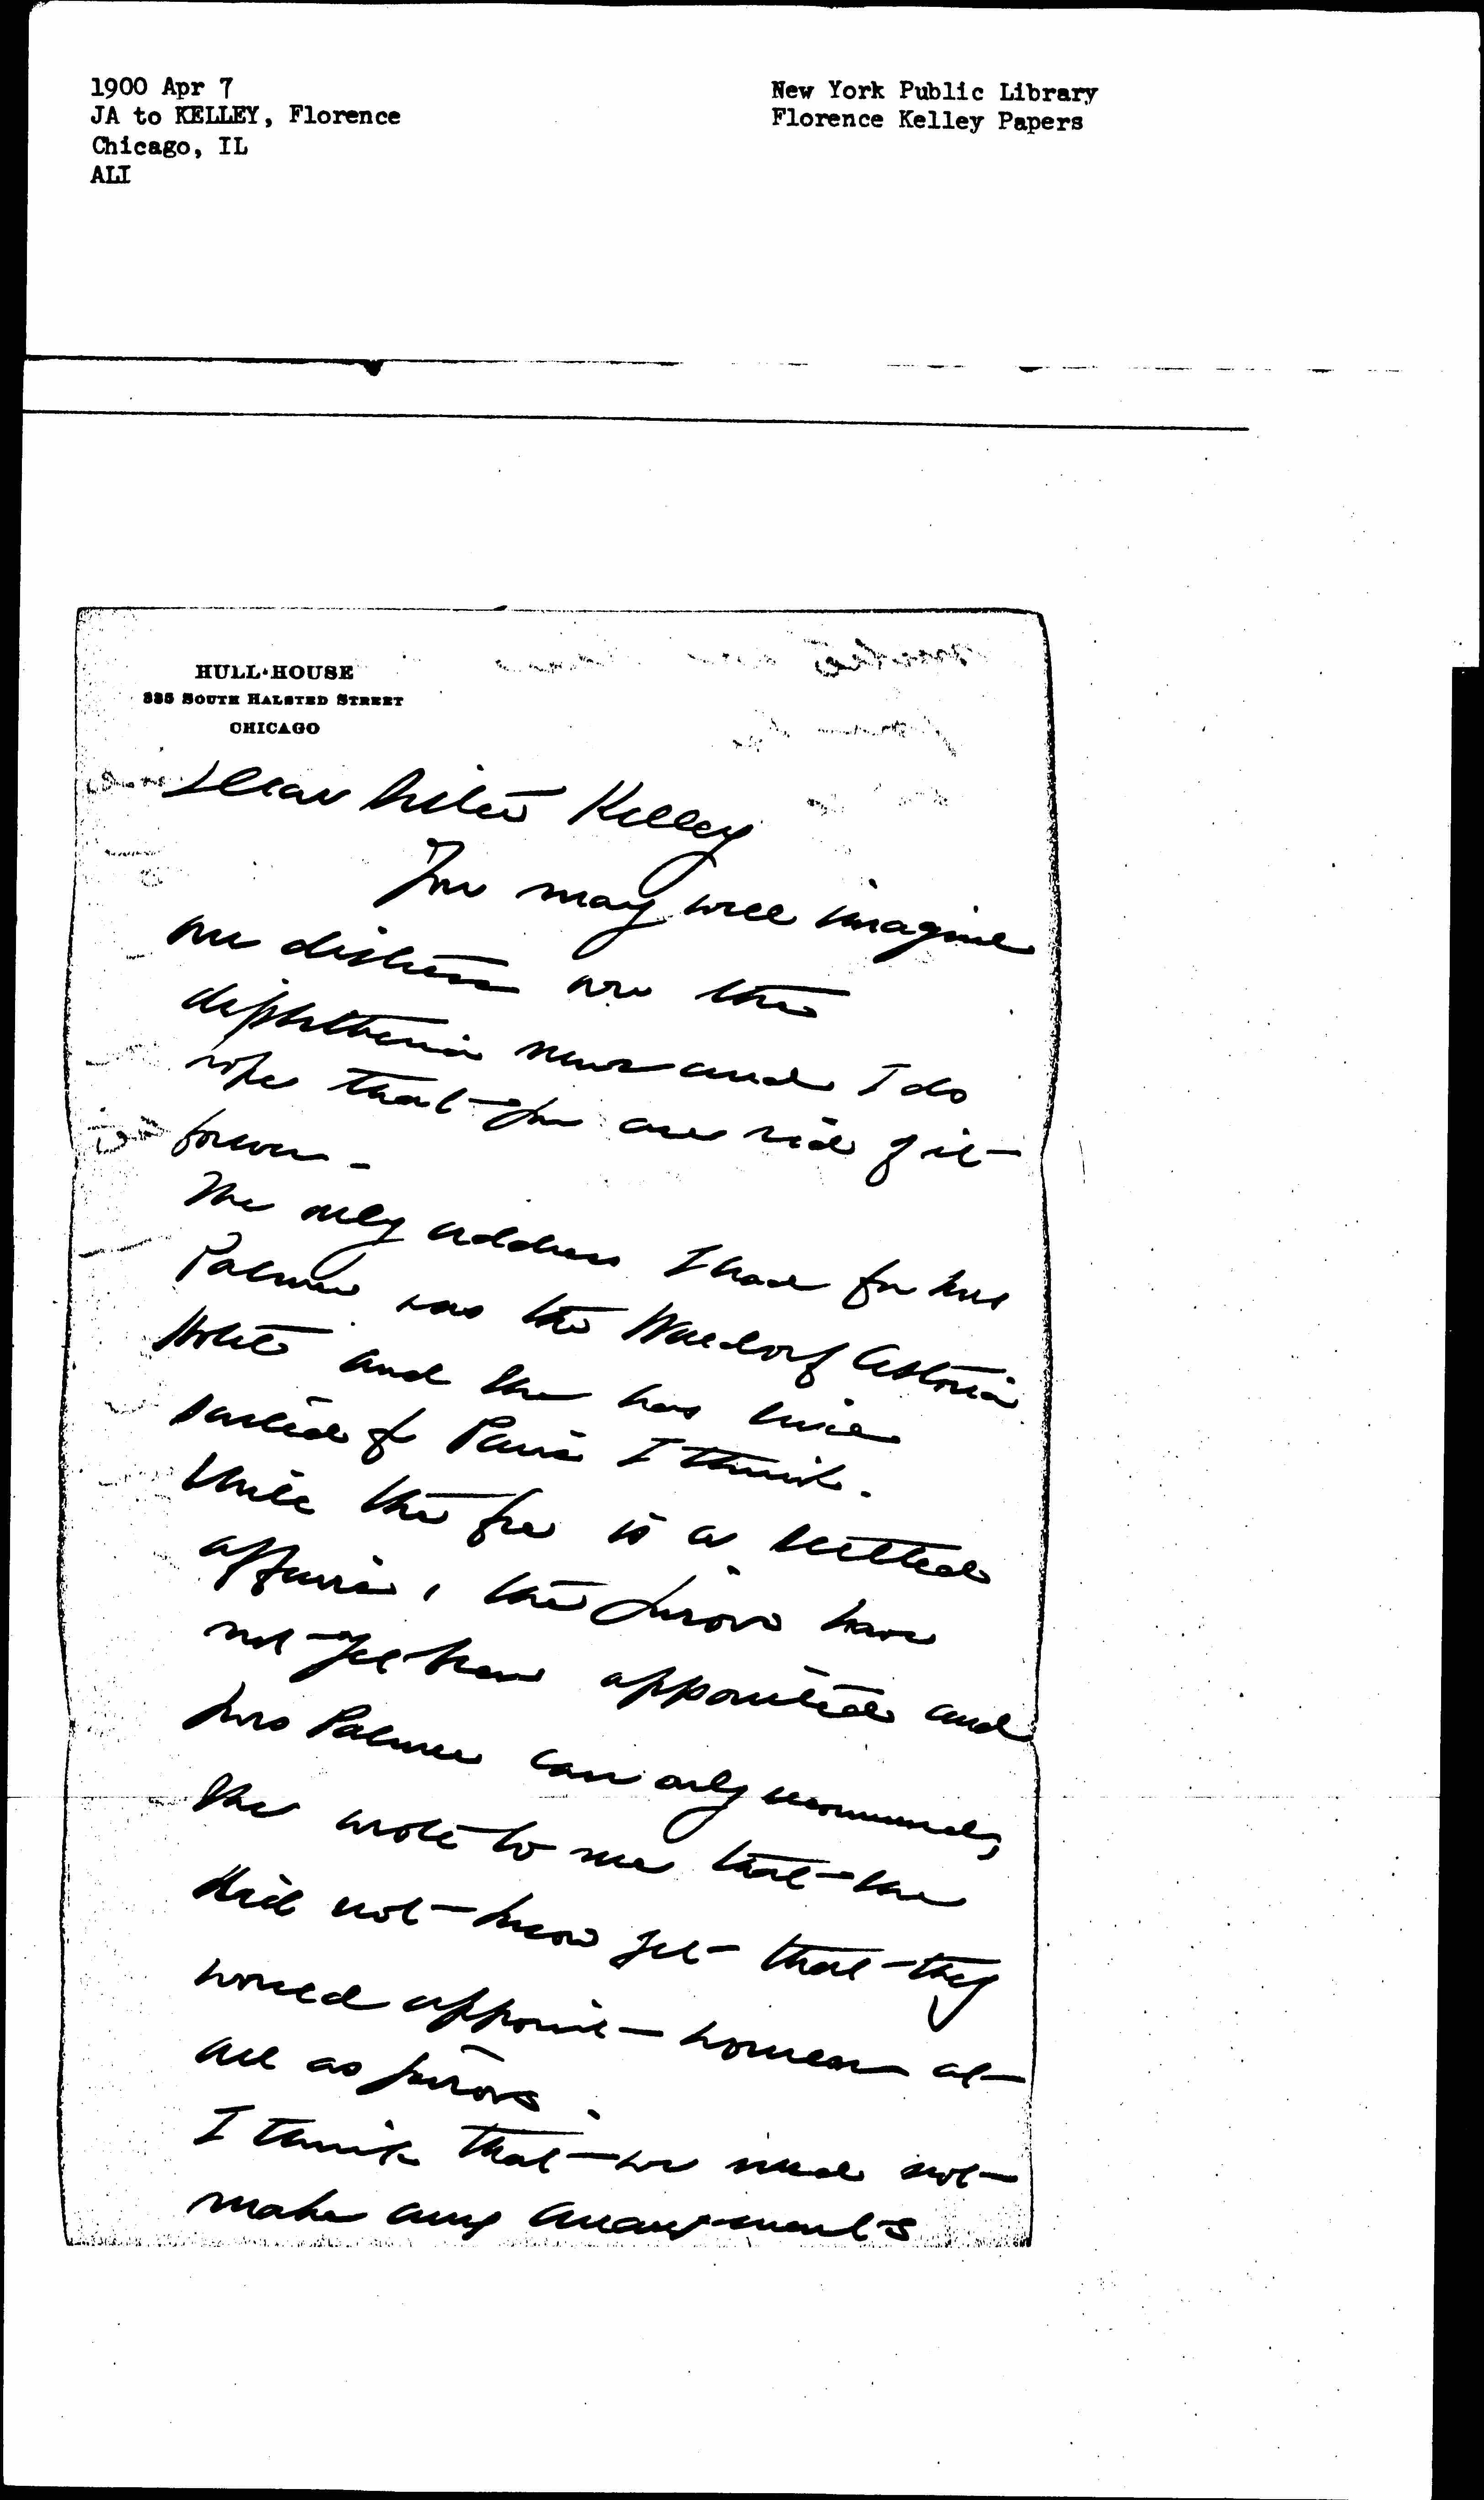 1900 Apr 7
JA to KELLEY, Florence
Chicago, IL
ALI
New York Public Library
Florence Kelley Papers
HULL-HOUSE
335 SOUTH HALSTED STREET
CHICAGO
Dear Sister Kelley
You may well imagine
our distress over the
diphtheria news and I do
hope that you are rid of it
forever -
The only address I have for Mrs
Palmer was the Waldorf Astoria
Hotel and she has since
started for Paris I think.
While the fee is a settled
affair, the Jurors have
not yet been appointed and
Mrs Palmer can only recommend,
She wrote to me that she
did not know yet that they
would appoint women at
all as jurors.
I think that we need not
make any arrangements